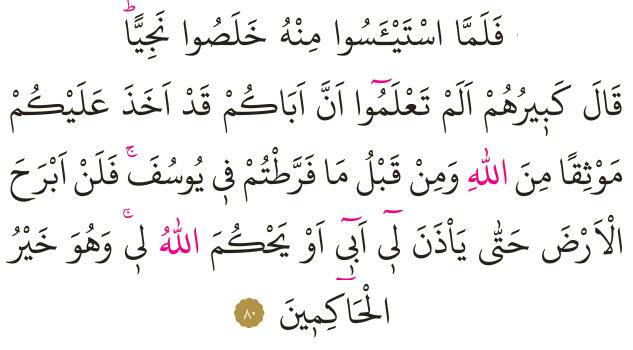 فَلَمَّا اسْتَيْـَٔسُوا مِنْهُ خَلَصُوا نَجِيًّاۜ
قَالَ كَبٖيرُهُمْ اَلَمْ تَعْلَمُٓوا اَنَّ اَبَاكُمْ قَدْ اَخَذَ عَلَيْكُمْ
مَوْثِقًا مِنَ اللّٰهِ وَمِنْ قَبْلُ مَا فَرَّطْتُمْ فٖى يُوسُفَۚ فَلَنْ اَبْرَحَ
الْاَرْضَ حَتّٰى يَاْذَنَ لٖٓى اَبٖٓى اَوْ يَحْكُمَ اللّٰهُ لٖىۚ وَهُوَ خَيْرُ
الْحَاكِمٖينَ ٨٠